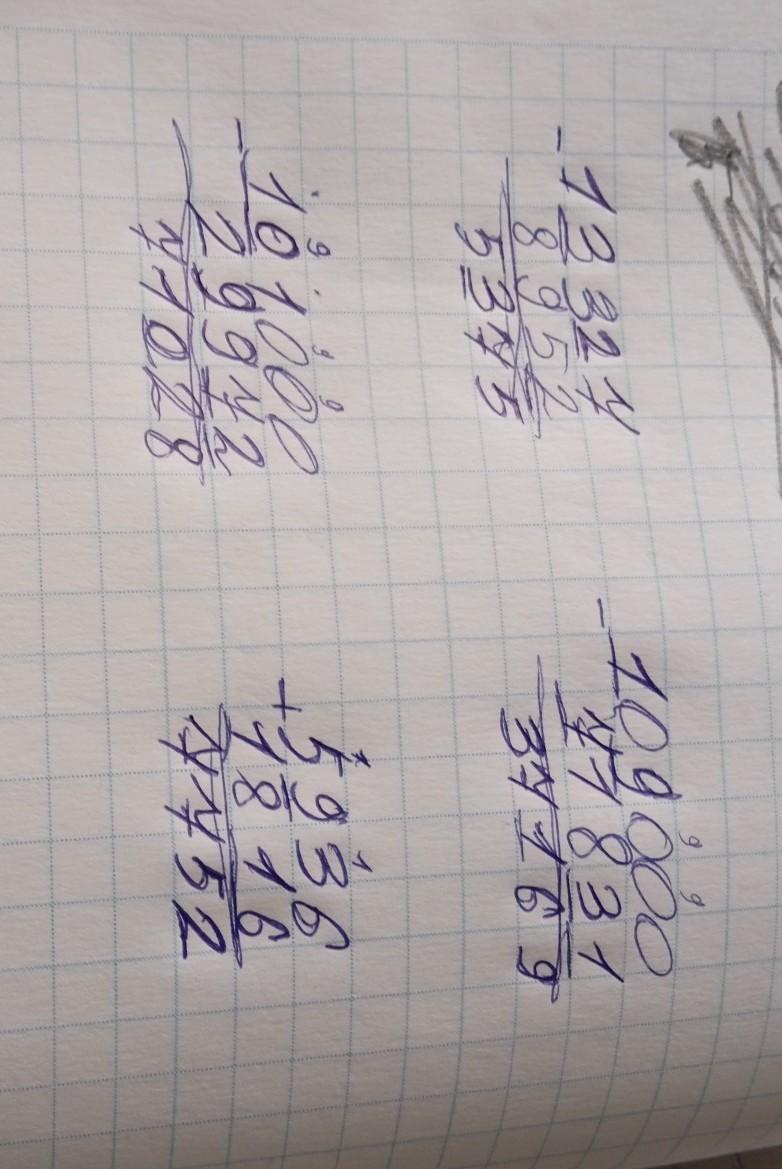 - 13327
8952
5375
9 9
- 109000
71831
37169
9 9 9
- 101000
29972
71028
1
+ 5936
1816
7752